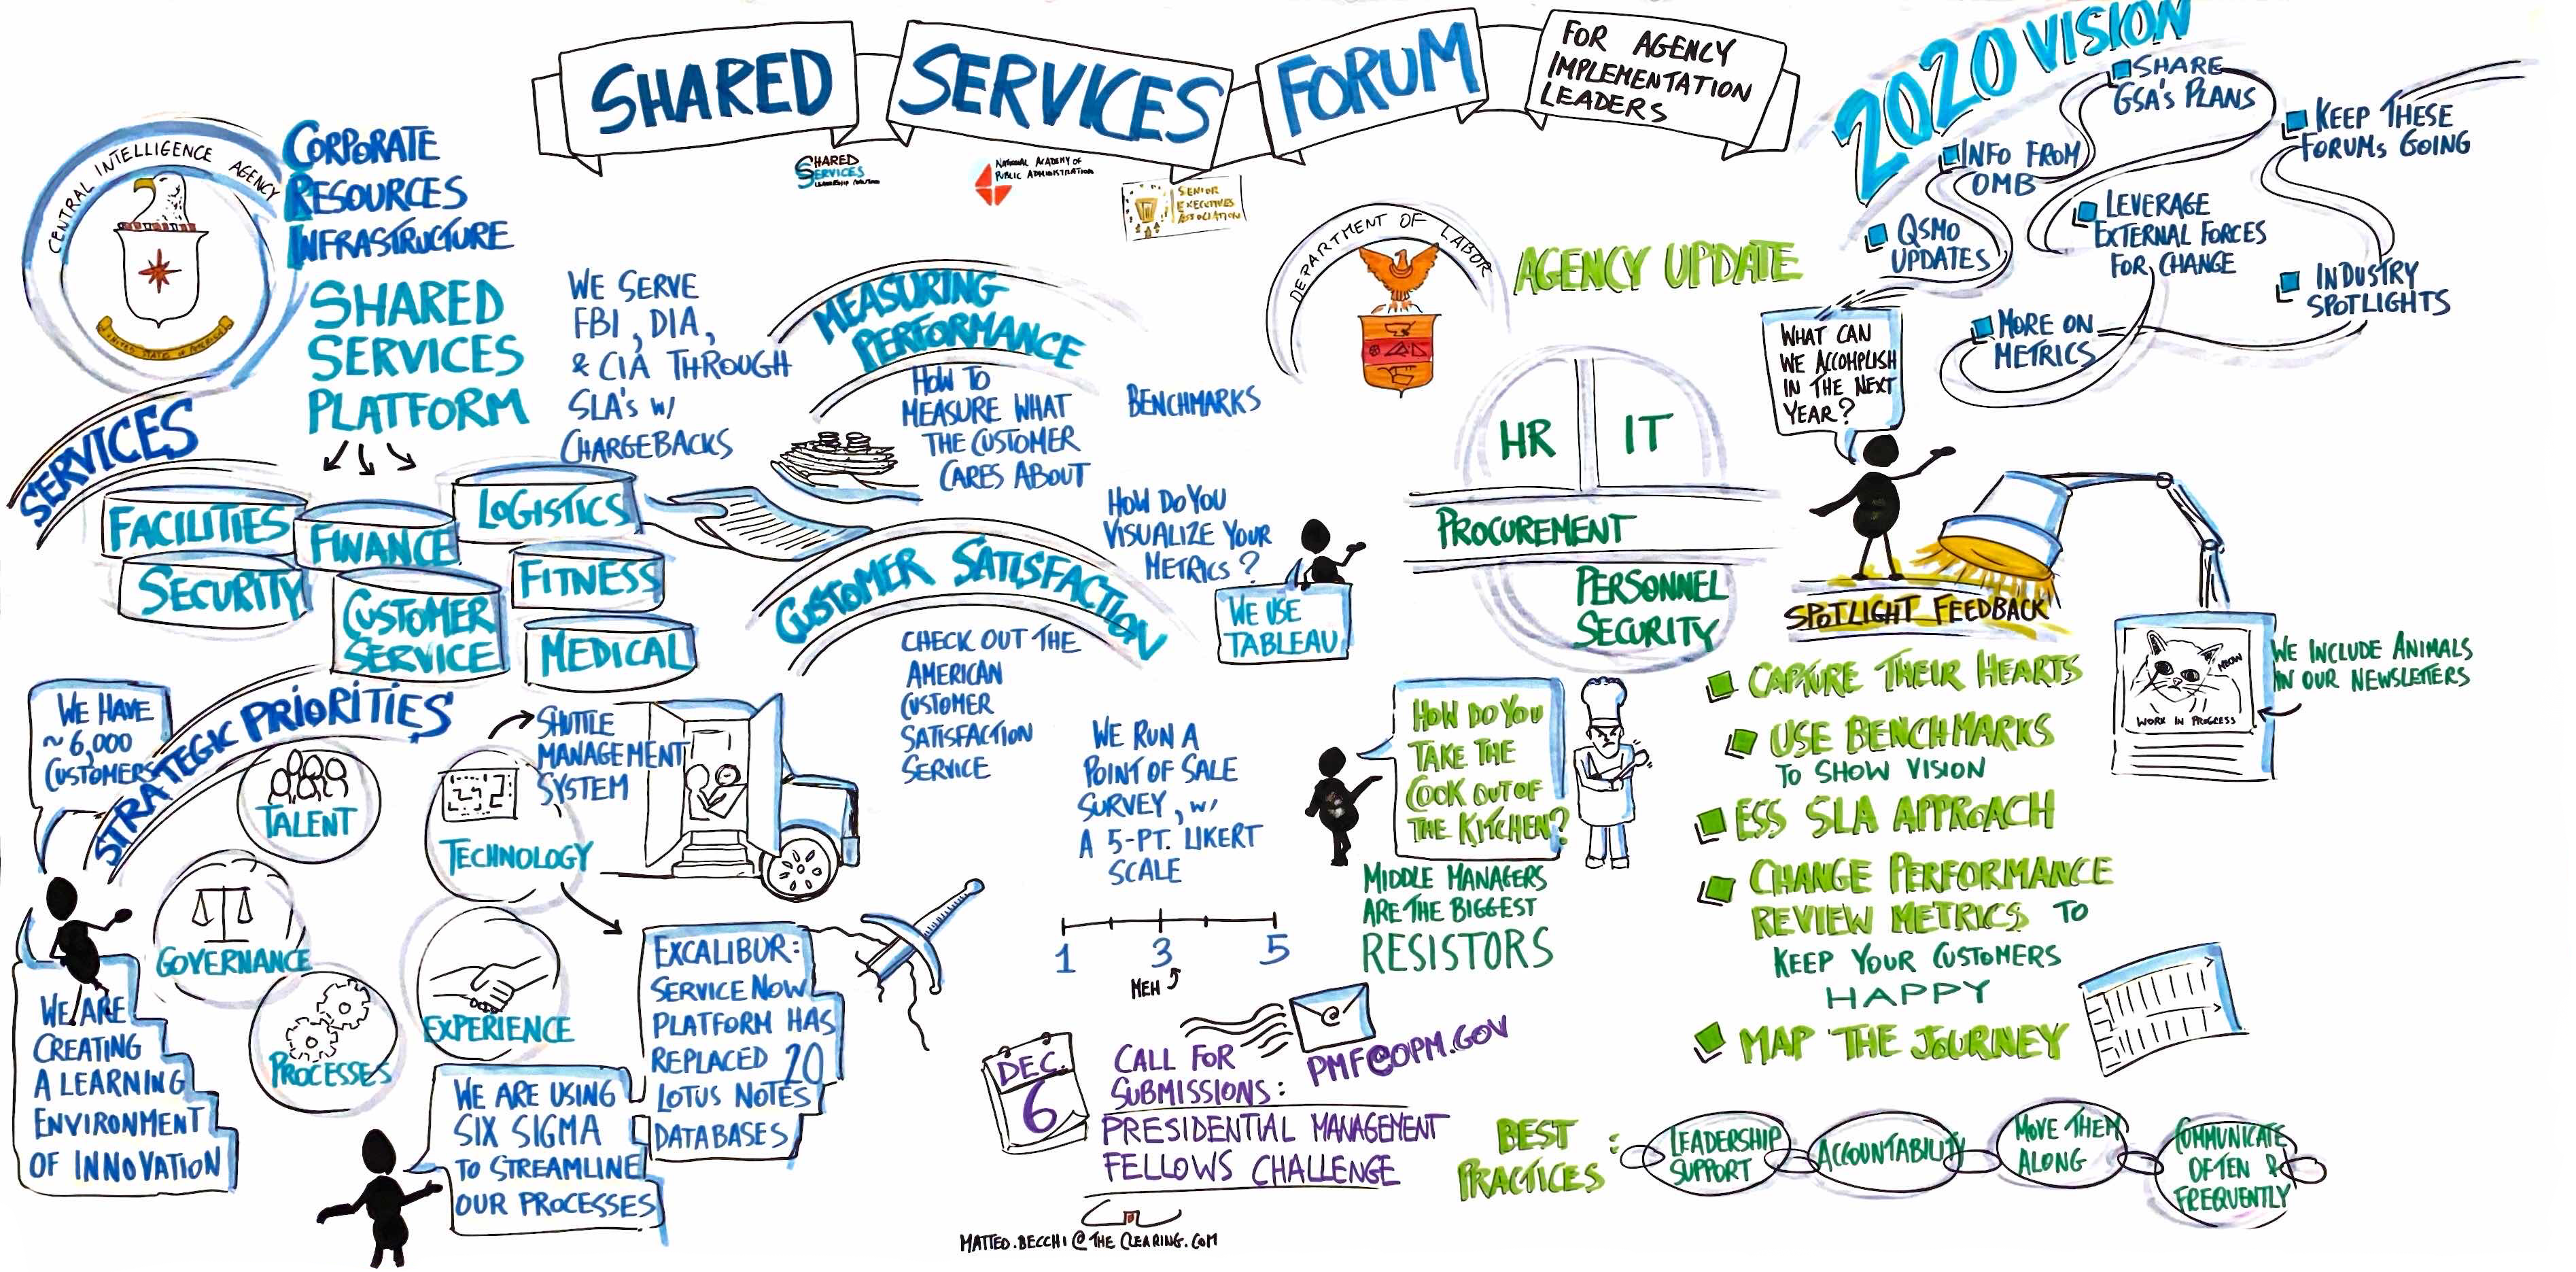 SHARED SERVICES FORUM
FOR AGENCY
IMPLEMENTATION
LEADERS
SHARED
SERVICES
NATIONAL ACADEMY OF
PUBLIC ADMINISTRATION
SENIOR
EXECUTIVES
ASSOCIATION
CENTRAL INTELLIGENCE AGENCY
UNITED STATES OF AMERICA
CORPORATE
RESOURCES
INFRASTRUCTURE
SHARED
SERVICES
PLATFORM
WE SERVE
FBI, DIA,
& CIA THROUGH
SLA's w/
CHARGEBACKS
SERVICES
FACILITIES
FINANCE
LOGISTICS
SECURITY
CUSTOMER
SERVICE
FITNESS
MEDICAL
WE HAVE
~6,000
CUSTOMERS
STRATEGIC PRIORITIES
TALENT
TECHNOLOGY
SHUTTLE
MANAGEMENT
SYSTEM
GOVERNANCE
PROCESSES
EXPERIENCE
WE ARE
CREATING
A LEARNING
ENVIRONMENT
OF INNOVATION
WE ARE USING
SIX SIGMA
TO STREAMLINE
OUR PROCESSES
EXCALIBUR:
SERVICE NOW
PLATFORM HAS
REPLACED 20
LOTUS NOTES
DATABASES
MEASURING
PERFORMANCE
HOW TO
MEASURE WHAT
THE CUSTOMER
CARES ABOUT
BENCHMARKS
HOW DO YOU
VISUALIZE YOUR
METRICS?
WE USE
TABLEAU
CUSTOMER SATISFACTION
CHECK OUT THE
AMERICAN
CUSTOMER
SATISFACTION
SERVICE
WE RUN A
POINT OF SALE
SURVEY, w/
A 5-PT. LIKERT
SCALE
1 3 5
MEH
DEC.
6
CALL FOR
SUBMISSIONS:
PMF@OPM.GOV
PRESIDENTIAL MANAGEMENT
FELLOWS CHALLENGE
MATTEO.BECCHI@THECLEARING.COM
DEPARTMENT OF LABOR
AGENCY UPDATE
HR
IT
PROCUREMENT
PERSONNEL
SECURITY
HOW DO YOU
TAKE THE
COOK OUT OF
THE KITCHEN?
MIDDLE MANAGERS
ARE THE BIGGEST
RESISTORS
2020 VISION
SHARE
GSA'S PLANS
INFO FROM
OMB
QSMO
UPDATES
KEEP THESE
FORUMS GOING
LEVERAGE
EXTERNAL FORCES
FOR CHANGE
INDUSTRY
SPOTLIGHTS
MORE ON
METRICS
WHAT CAN
WE ACCOMPLISH
IN THE NEXT
YEAR?
SPOTLIGHT FEEDBACK
CAPTURE THEIR HEARTS
USE BENCHMARKS
TO SHOW VISION
ESS SLA APPROACH
CHANGE PERFORMANCE
REVIEW METRICS TO
KEEP YOUR CUSTOMERS
HAPPY
MAP THE JOURNEY
MEOW
WORK IN PROGRESS
WE INCLUDE ANIMALS
IN OUR NEWSLETTERS
BEST
PRACTICES:
LEADERSHIP
SUPPORT
ACCOUNTABILITY
MOVE THEM
ALONG
COMMUNICATE
OFTEN &
FREQUENTLY